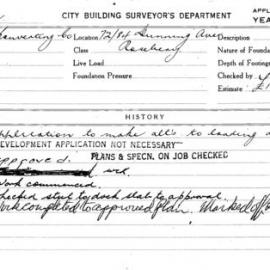 CITY BUILDING SURVEYOR'S DEPARTMENT
APPL
YEA
Converting Co Location 72/84 Dunning Ave
Class Rosebery
Nature of Founda
Live Load
Depth of Footing
Foundation Pressure
Checked by
Estimate £1
HISTORY
Application to make alt's to loading d
DEVELOPMENT APPLICATION NOT NECESSARY
Approved.
PLANS & SPECN. ON JOB CHECKED
Work commenced.
Checked steel to dock slab to approval.
Work completed to approved plan. Marked off